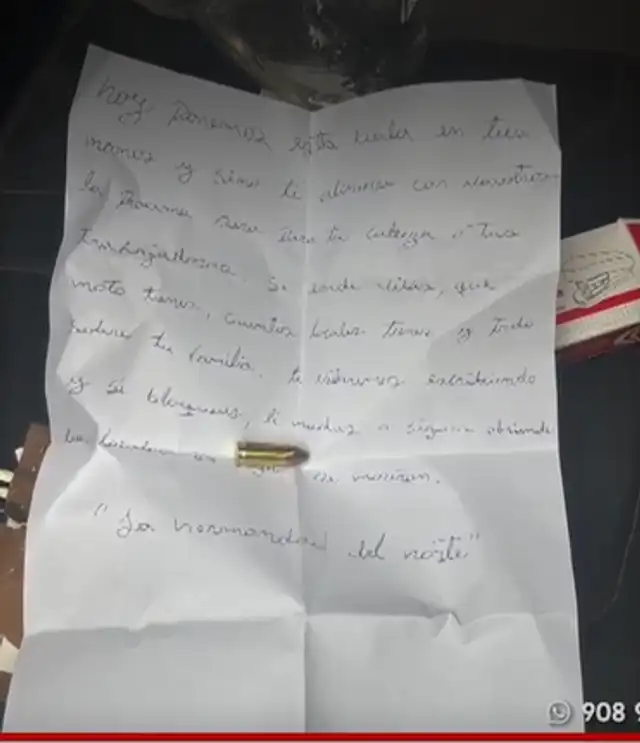 hoy Ponemos esta carta en tus
manos y si no te alineas con nosotros
la Proxima sera Para tu cabeza o tus
Trabajadores. Se donde vives, que
moto tienes, cuantos locales tienes y Todo
sobre tu Familia. te estaremos escribiendo
y si bloqueas, te mudas o sigues abriendo
se mueren.
"La hermandad del norte"
908 9